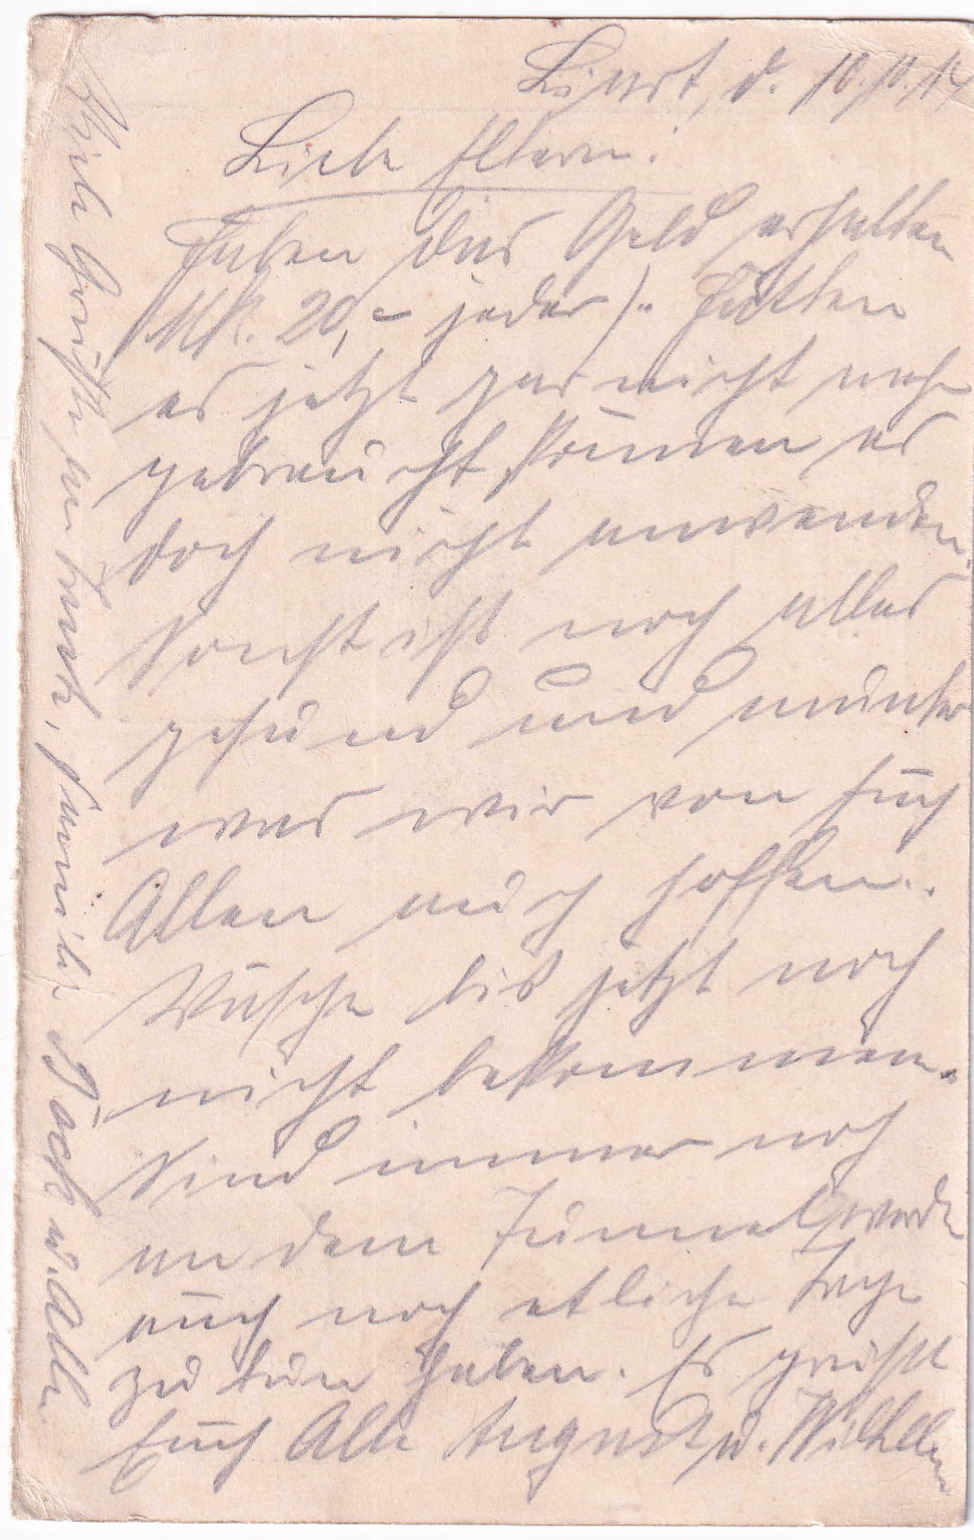 Liart, d. 10.10.14
Liebe Eltern!
Haben das Geld erhalten
Mk. 20,- jeder). Hätten
es jetzt gar nicht mehr
gebraucht, können es
doch nicht anwenden.
Sonst ist noch alles
gesund und munter
was wir von Euch
Allen auch hoffen.
Wäsche bis jetzt noch
nicht bekommen.
Sind immer noch
an dem Tunnel, werden
auch noch etliche Tage
zu tun haben. Es grüßt
Euch Alle August u. Wilhelm
Viele Grüße an Familie Bock u. Alle.